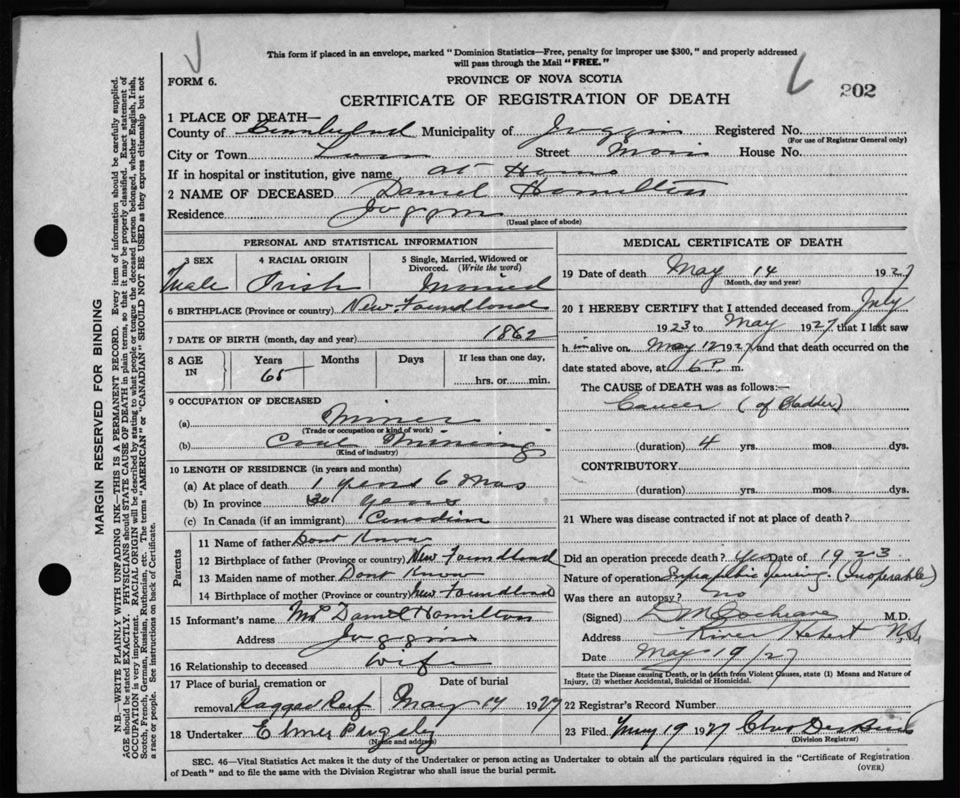 This form if placed in an envelope, marked "Dominion Statistics—Free, penalty for improper use $300," and properly addressed
will pass through the Mail "FREE."
FORM 6.
PROVINCE OF NOVA SCOTIA
202
CERTIFICATE OF REGISTRATION OF DEATH
1 PLACE OF DEATH—
County of Cumberland Municipality of Joggin Registered No.
(For use of Registrar General only)
City or Town Street Main House No.
If in hospital or institution, give name at Home
2 NAME OF DECEASED Daniel Hamilton
Residence Joggins
(Usual place of abode)
PERSONAL AND STATISTICAL INFORMATION
3 SEX 4 RACIAL ORIGIN 5 Single, Married, Widowed or
Divorced. (Write the word)
Male Irish Married
6 BIRTHPLACE (Province or country) New Foundland
7 DATE OF BIRTH (month, day and year) 1862
8 AGE IN Years Months Days If less than one day,
65 hrs. or min.
9 OCCUPATION OF DECEASED
(a) Miner
(Trade or occupation or kind of work)
(b) Coal Mining
(Kind of industry)
10 LENGTH OF RESIDENCE (in years and months)
(a) At place of death 1 year 6 mos
(b) In province 30 years
(c) In Canada (if an immigrant) Canadian
Parents
11 Name of father Dont Know
12 Birthplace of father (Province or country) New Foundland
13 Maiden name of mother Dont Know
14 Birthplace of mother (Province or country) New Foundland
15 Informant's name Mrs Daniel Hamilton
Address Joggins
16 Relationship to deceased wife
17 Place of burial, cremation or Date of burial
removal Ragged Reef May 17 1927
18 Undertaker Elmer Pugsley
(Name and address)
MEDICAL CERTIFICATE OF DEATH
19 Date of death May 14 1927
(Month, day and year)
20 I HEREBY CERTIFY that I attended deceased from July
1923 to May 1927, that I last saw
him alive on May 12 1927 and that death occurred on the
date stated above, at 6 P. m.
The CAUSE of DEATH was as follows:—
Cancer (of Bladder)
(duration) 4 yrs. mos. dys.
CONTRIBUTORY
(duration) yrs. mos. dys.
21 Where was disease contracted if not at place of death?
Did an operation precede death? Yes Date of 1923
Nature of operation Suprapubic (Inoperable)
Was there an autopsy? no
(Signed) D M Cochrane M.D.
Address River Hebert N.S.
Date May 19/27
State the Disease causing Death, or in death from Violent Causes, state (1) Means and Nature of
Injury, (2) whether Accidental, Suicidal or Homicidal.
22 Registrar's Record Number
23 Filed May 19 1927
(Division Registrar)
SEC. 46—Vital Statistics Act makes it the duty of the Undertaker or person acting as Undertaker to obtain all the particulars required in the "Certificate of Registration
of Death" and to file the same with the Division Registrar who shall issue the burial permit.
(OVER)
MARGIN RESERVED FOR BINDING
N.B.—WRITE PLAINLY WITH UNFADING INK—THIS IS A PERMANENT RECORD. Every item of information should be carefully supplied.
AGE should be stated EXACTLY. PHYSICIANS should STATE CAUSE OF DEATH in plain terms, so that it may be properly classified. Exact statement of
OCCUPATION is very important. RACIAL ORIGIN will be described by stating to what people or tongue the deceased person belonged, whether English, Irish,
Scotch, French, German, Russian, Ruthenian, etc. The terms "AMERICAN" or "CANADIAN" SHOULD NOT BE USED as they express citizenship but not
a race or people. See instructions on back of Certificate.